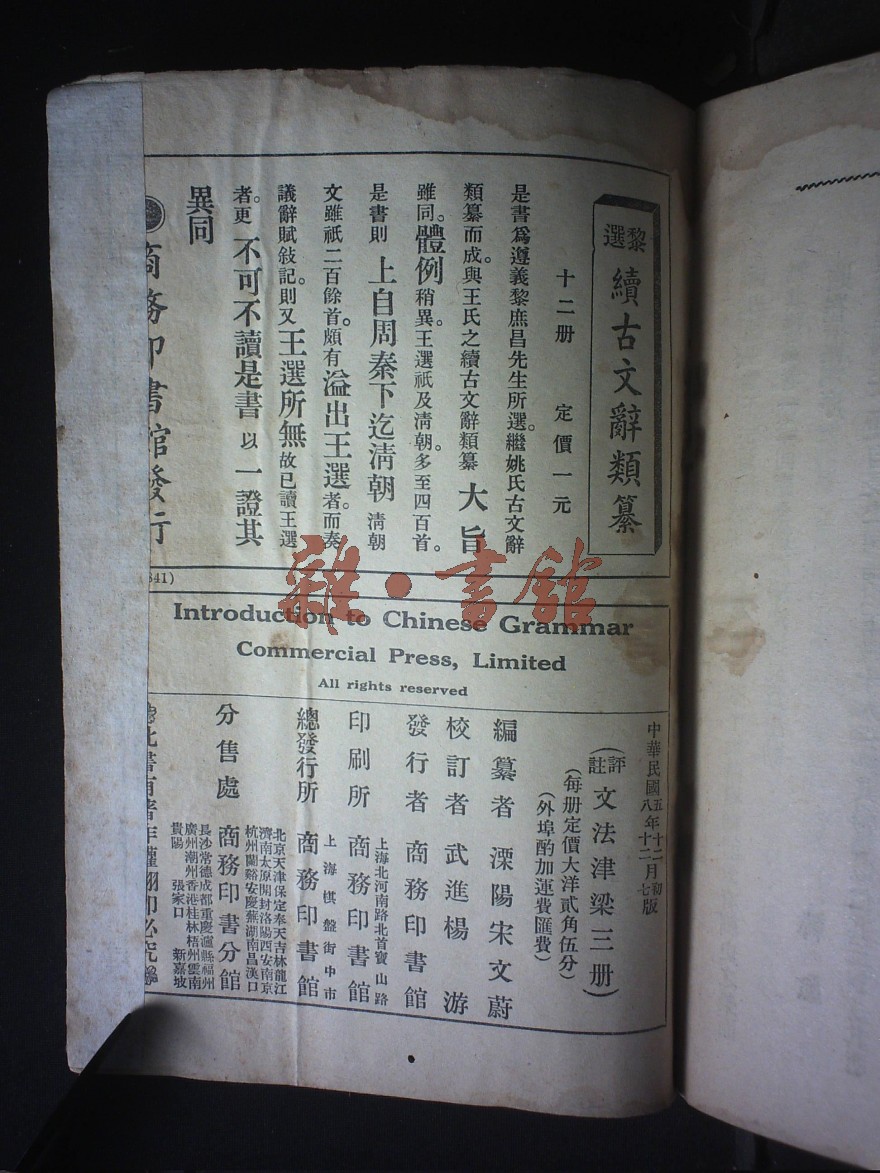 黎選 續古文辭類纂
十二册 定價一元
是書爲遵義黎庶昌先生所選。繼姚氏古文辭
類纂而成。與王氏之續古文辭類纂大旨
雖同。體例稍異。王選祇及清朝。多至四百首。
是書則上自周秦下迄清朝清朝
文雖祇二百餘首。頗有溢出王選者。而奏
議辭賦敍記。則又王選所無故已讀王選
者。更不可不讀是書以一證其
異同
商務印書館發行
841)
Introduction to Chinese Grammar
Commercial Press, Limited
All rights reserved
中華民國五年十二月初版
八年十二月七版
(評註文法津梁三册)
(每册定價大洋貳角伍分)
(外埠酌加運費匯費)
編纂者 溧陽宋文蔚
校訂者 武進楊游
發行者 商務印書館
上海北河南路北首寶山路
印刷所 商務印書館
上海棋盤街中市
總發行所 商務印書館
北京天津保定奉天吉林龍江
濟南太原開封洛陽西安南京
杭州蘭谿安慶蕪湖南昌漢口
分售處 商務印書分館
長沙常德成都重慶瀘縣福州
廣州潮州香港桂林梧州雲南
貴陽 張家口 新嘉坡
此書有著作權翻印必究
雜·書館